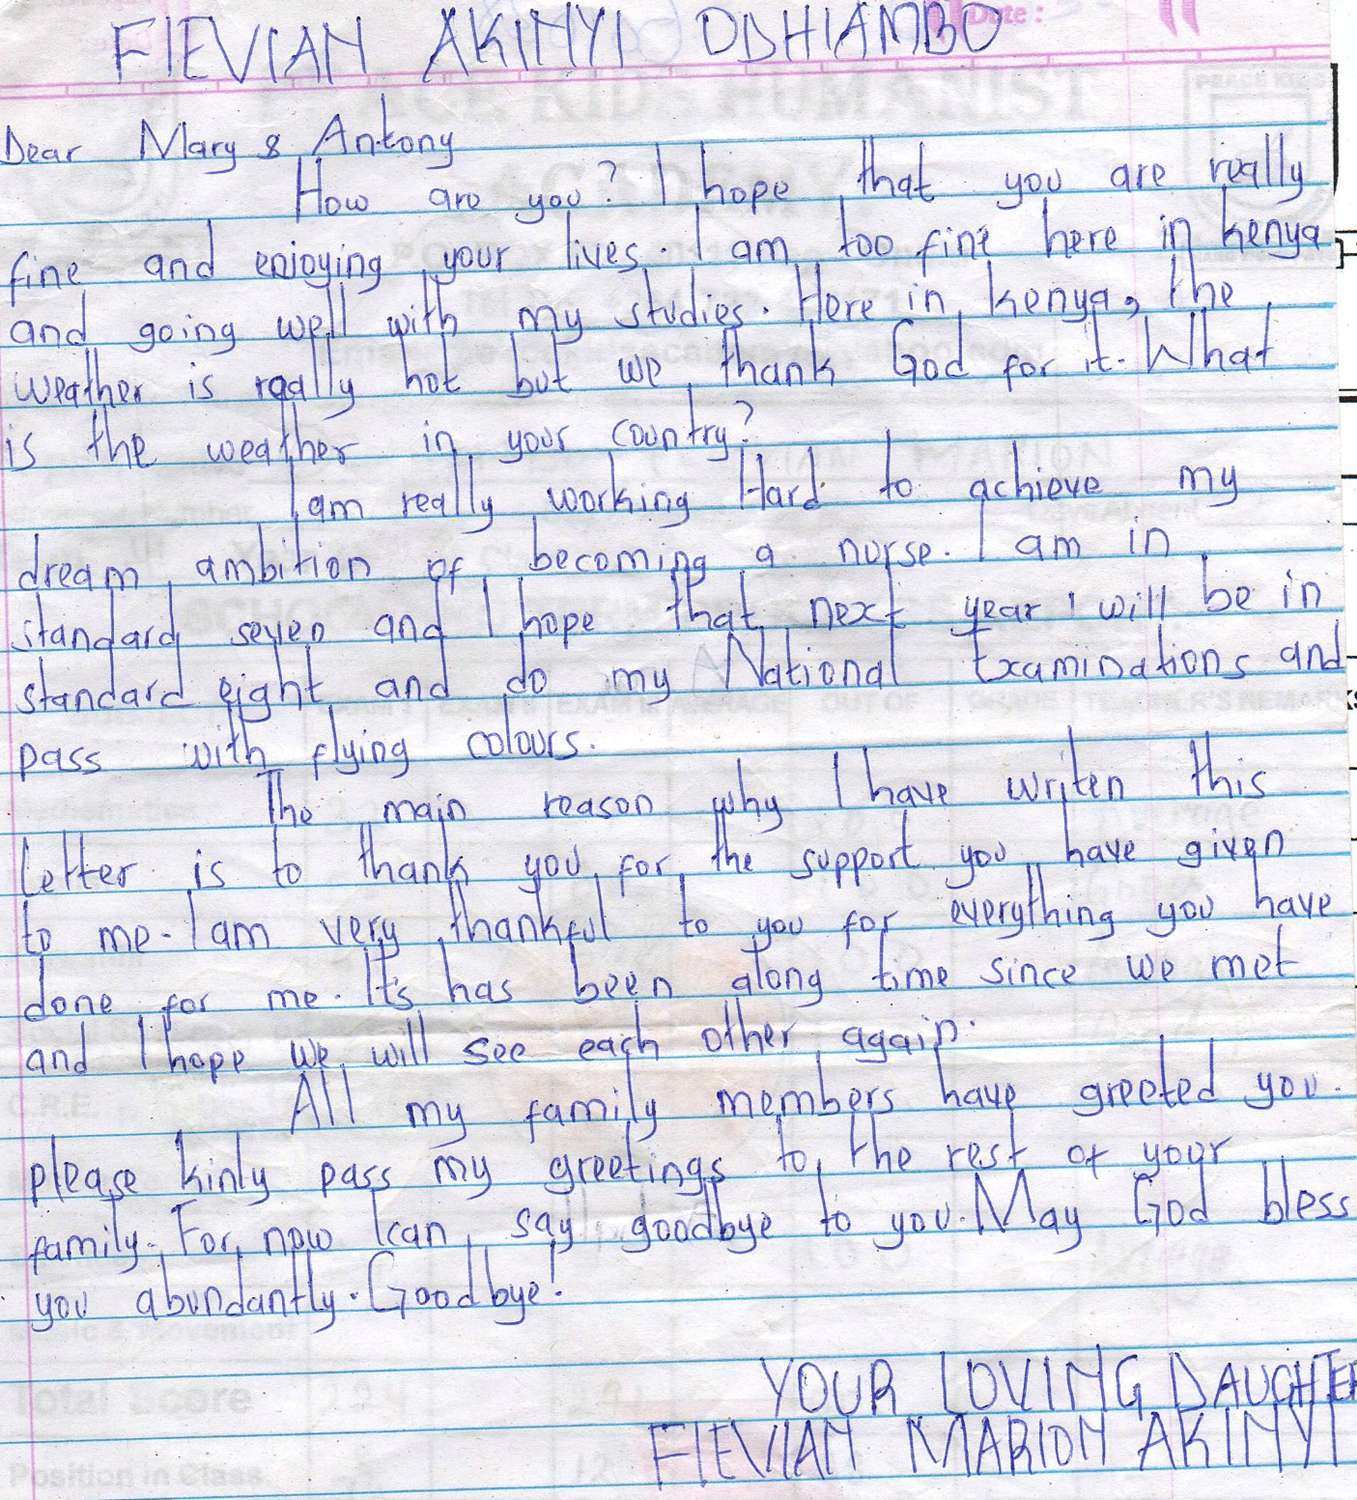 Date :
FIEVIAN AKINYI ODHIAMBO
Dear Mary & Antony
How are you? I hope that you are really
fine and enjoying your lives. I am too fine here in kenya
and going well with my studies. Here in kenya, the
weather is really hot but we thank God for it. What
is the weather in your country?
I am really working Hard to achieve my
dream ambition of becoming a nurse. I am in
standard seven and I hope that next year I will be in
standard eight and do my National Examinations and
pass with flying colours.
The main reason why I have writen this
letter is to thank you for the support you have given
to me. I am very thankful to you for everything you have
done for me. It's has been along time since we met
and I hope we will see each other again.
All my family members have greeted you.
please kinly pass my greetings to the rest of your
family. For now I can say goodbye to you. May God bless
you abundantly. Goodbye!
YOUR LOVING DAUGHTER
FIEVIAN MARION AKINYI